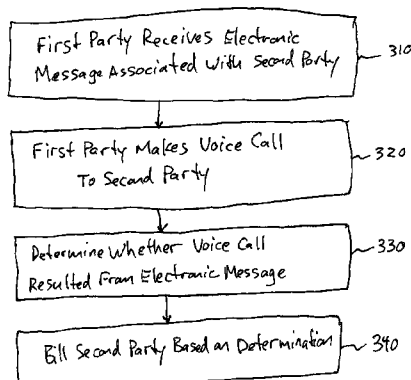 First Party Receives Electronic
Message Associated With Second Party
310
First Party Makes Voice Call
To Second Party
320
Determine Whether Voice Call
Resulted From Electronic Message
330
Bill Second Party Based on Determination
340